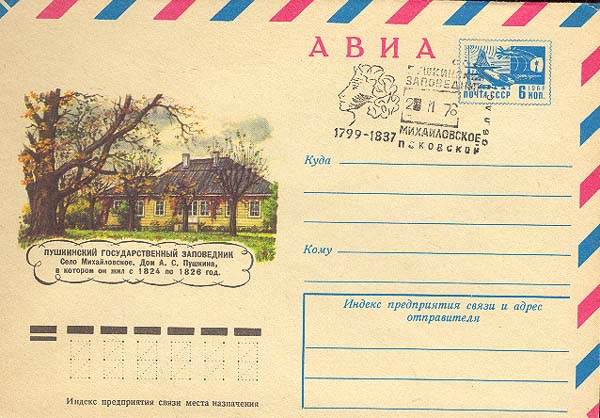 АВИА
ПУШКИНСКИЙ
ЗАПОВЕДНИК
1799-1837
МИХАЙЛОВСКОЕ
ПСКОВСКОЙ
ОБЛ
1966
ПОЧТА СССР 6 КОП.
Куда
Кому
ПУШКИНСКИЙ ГОСУДАРСТВЕННЫЙ ЗАПОВЕДНИК
Село Михайловское. Дом А. С. Пушкина,
в котором он жил с 1824 по 1826 год.
Индекс предприятия связи и адрес
отправителя
Индекс предприятия связи места назначения